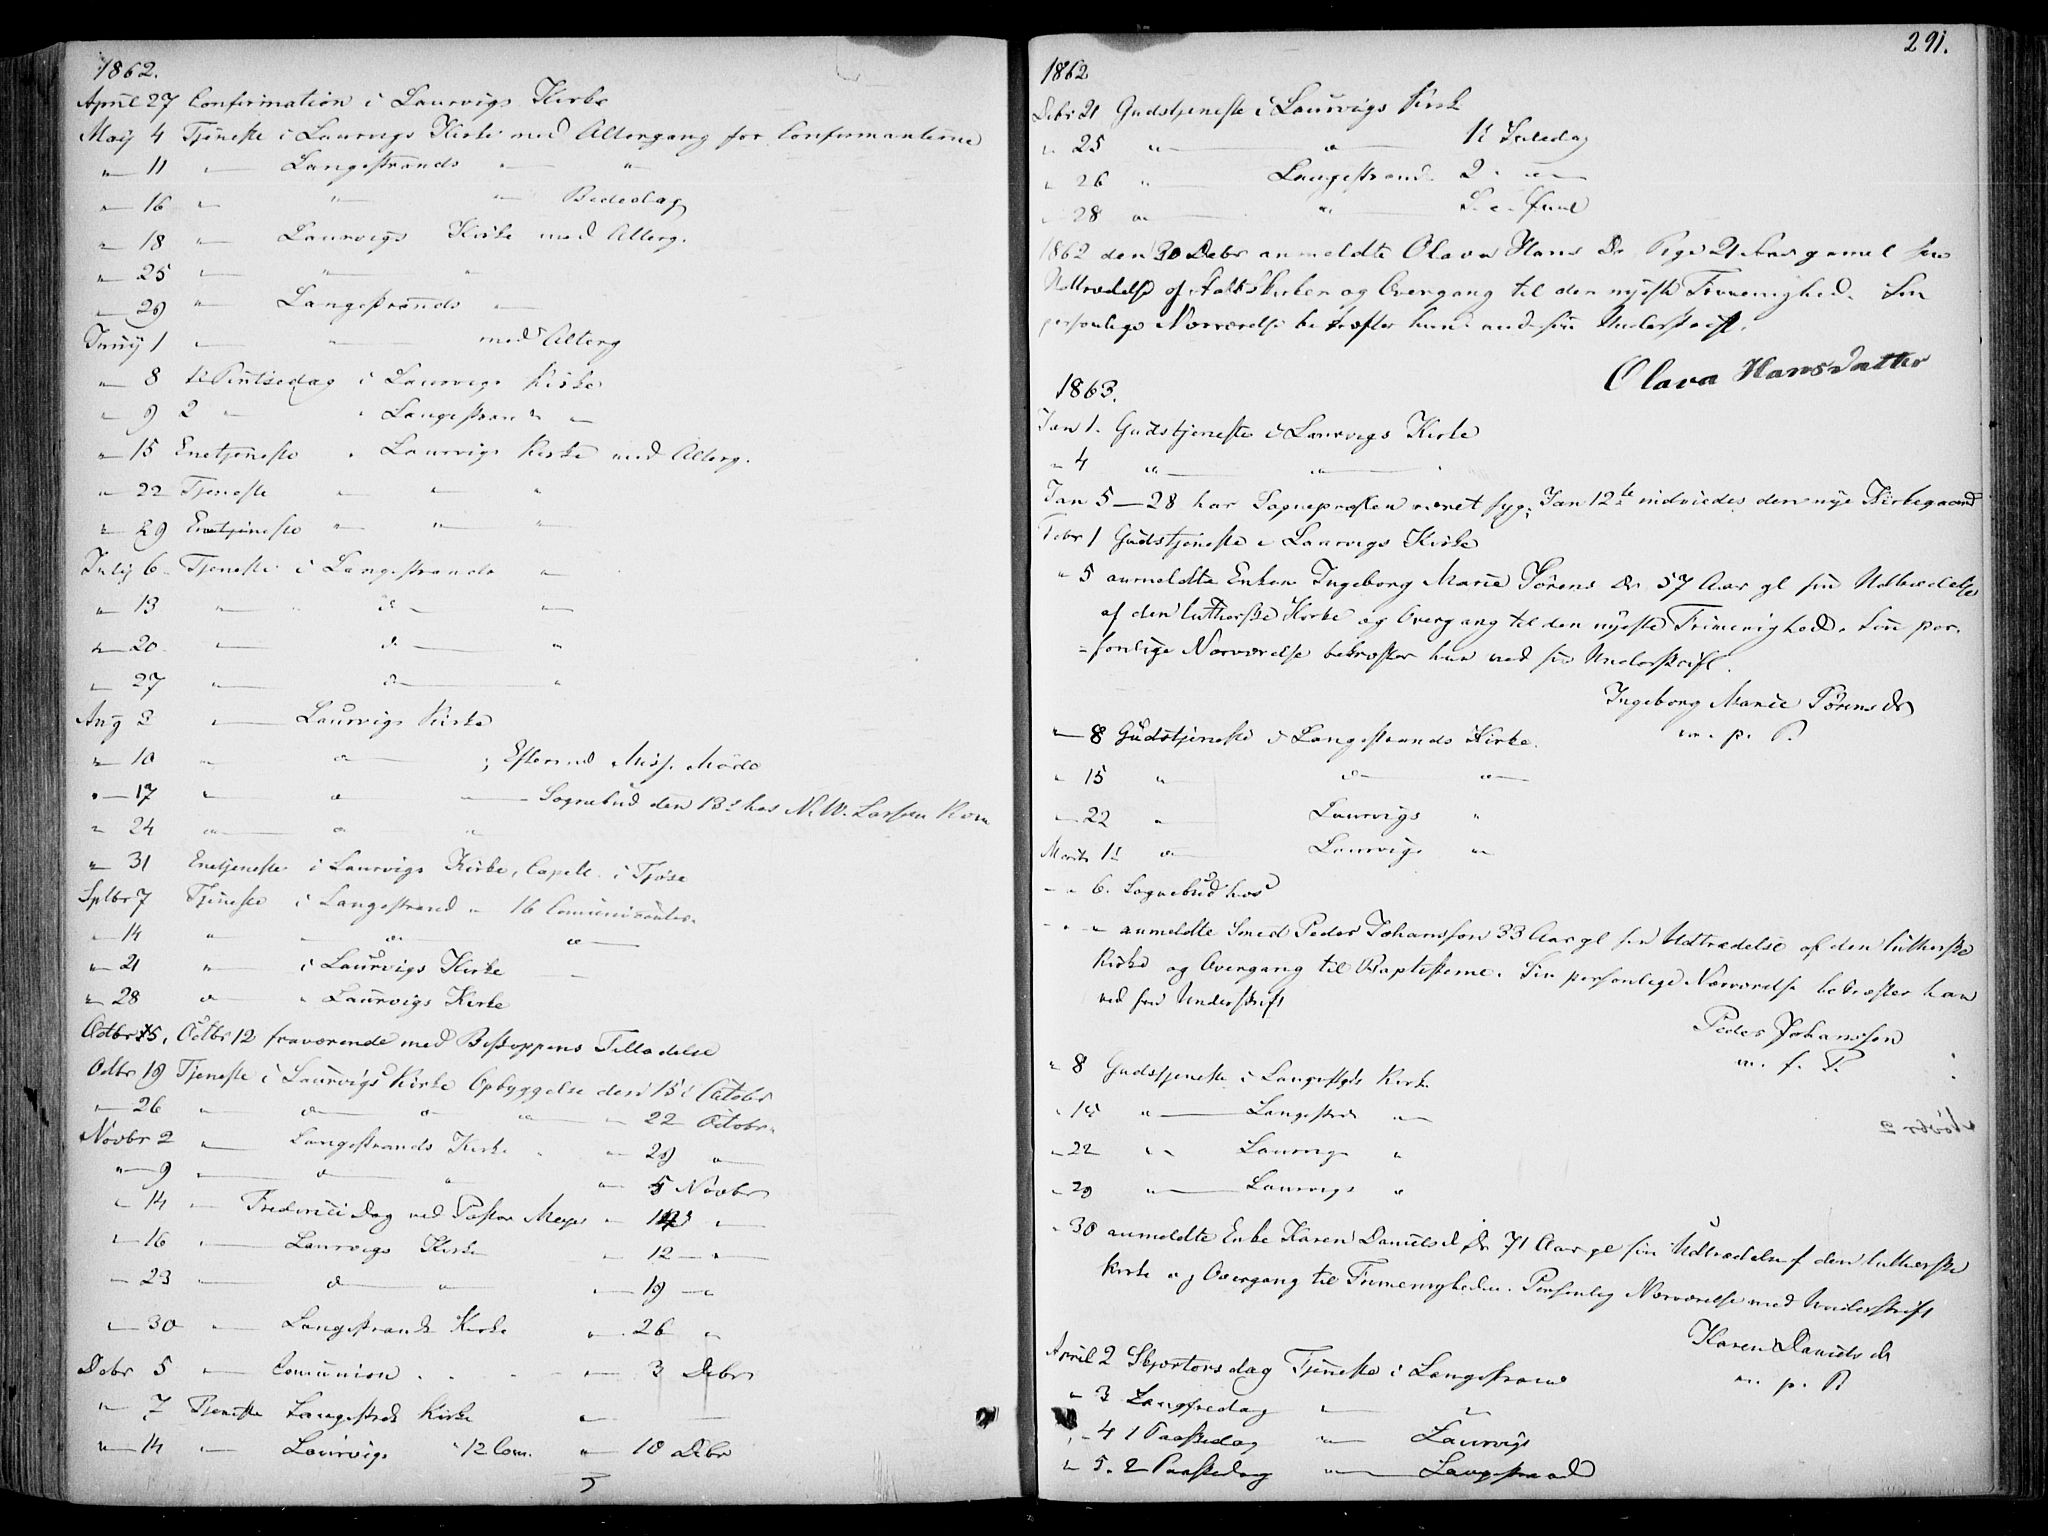 1862.
April 27 Confirmation i Laurvigs Kirke
Maij 4 Tjeneste i Laurvigs Kirke med Altergang for Confirmanterne
" 11 " Langestrands " "
" 16 " " " Bededag
" 18 " Laurvigs Kirke med Alterg.
" 25 " " "
" 29 " Langestrands "
Junij 1 " " med Alterg
" 8 1ste Pintsedag i Laurvigs Kirke
" 9 2 " " Langestrands "
" 15 Enetjeneste " Laurvigs Kirke med Alterg.
" 22 Tjeneste " " "
" 29 Enetjeneste " " "
Julij 6 Tjeneste i Langestrands "
" 13 " " do "
" 20 " do "
" 27 " do "
Aug 3 " Laurvigs Kirke
" 10 " " ; Efterm. Miss. Möde
" 17 " " " Sognebud den 13de hos N. W. Larssen
" 24 " " "
" 31 Enetjeneste i Laurvigs Kirke, Capell. i Tjøse
Sptbr 7 Tjeneste i Langestrand " 16 Comunicanter
" 14 " " "
" 21 " i Laurvigs Kirke
" 28 " " Laurvigs Kirke
Octbr 5, Octbr 12 fraværende med Biskoppens Tilladelse
Octbr 19 Tjeneste i Laurvigs Kirke Opbyggelse den 15de Octobr
" 26 " " " " " 22 Octobr.
Novbr 2 " Langestrands Kirke " " 29 "
" 9 " " " " 5 Novbr
" 14 " Fredericidag ved Pastor Meyer "
" 16 " Laurvigs Kirke " 12 "
" 23 " " " " 19 "
" 30 " Langestrands Kirke " 26 "
Debr 5 " Comunion " 3 Debr
" 7 Tjeneste Langestrds Kirke "
" 14 " Laurvigs " 12 Com. " 10 Debr
291.
1862
Debr 21 Gudstjeneste i Laurvigs Kirke
" 25 " " 1ste Juledag
" 26 " Langestrand 2 "
" 28 " "
1862 den 30 Debr anmeldte Olava Hans Dr Pige 21 Aar gammel sin
Udtrædelse af Statskirken og Overgang til den nyeste Frimenighed. Sin
personlige Nærværelse bekræfter hun ved sin Underskrift.
Olava Hansdatter
1863.
Jan 1. Gudstjeneste i Laurvigs Kirke
" 4 " "
Jan 5 — 28 har Sognepræsten været syg; Jan 12te indviedes den nye Kirkegaard
Febr 1 Gudstjeneste i Laurvigs Kirke
" 5 anmeldte Enken Ingeborg Marie Sørens Dr 57 Aar gl sin Udtrædelse
af den lutherske Kirke og Overgang til den nyeste Frimenighed. Sin per-
=sonlige Nærværelse bekræfter hun ved sin Underskrift.
Ingeborg Marie Sørens Dr
m. p. P.
" 8 Gudstjeneste i Langestrands Kirke.
" 15 " do "
" 22 " Laurvigs "
Marts 1ste " Laurvigs "
" " 6. Sognebud hos
" " " anmeldte Smed Peder Johanssen 33 Aar gl sin Udtrædelse af den lutherske
Kirke og Overgang til Baptisterne. Sin personlige Nærværelse bekræfter han
ved sin Underskrift
Peder Johanssen
m. f. P.
" 8 Gudstjeneste i Langestrds Kirke
" 15 " Langestrds "
" 22 " Laurvigs "
" 29 " Laurvigs "
" 30 anmeldte Enke Karen Daniels Dr 71 Aar gl sin Udtrædelse af den lutherske
Kirke og Overgang til Frimenigheden. Personlig Nærværelse med Underskrift
Karen Daniels dr
m. p. P.
April 2 Skjærtorsdag Tjeneste i Langestrand
" 3 Langfredag " "
" 4 1 Paaskedag " Laurvigs
" 5. 2 Paaskedag " Langestrand